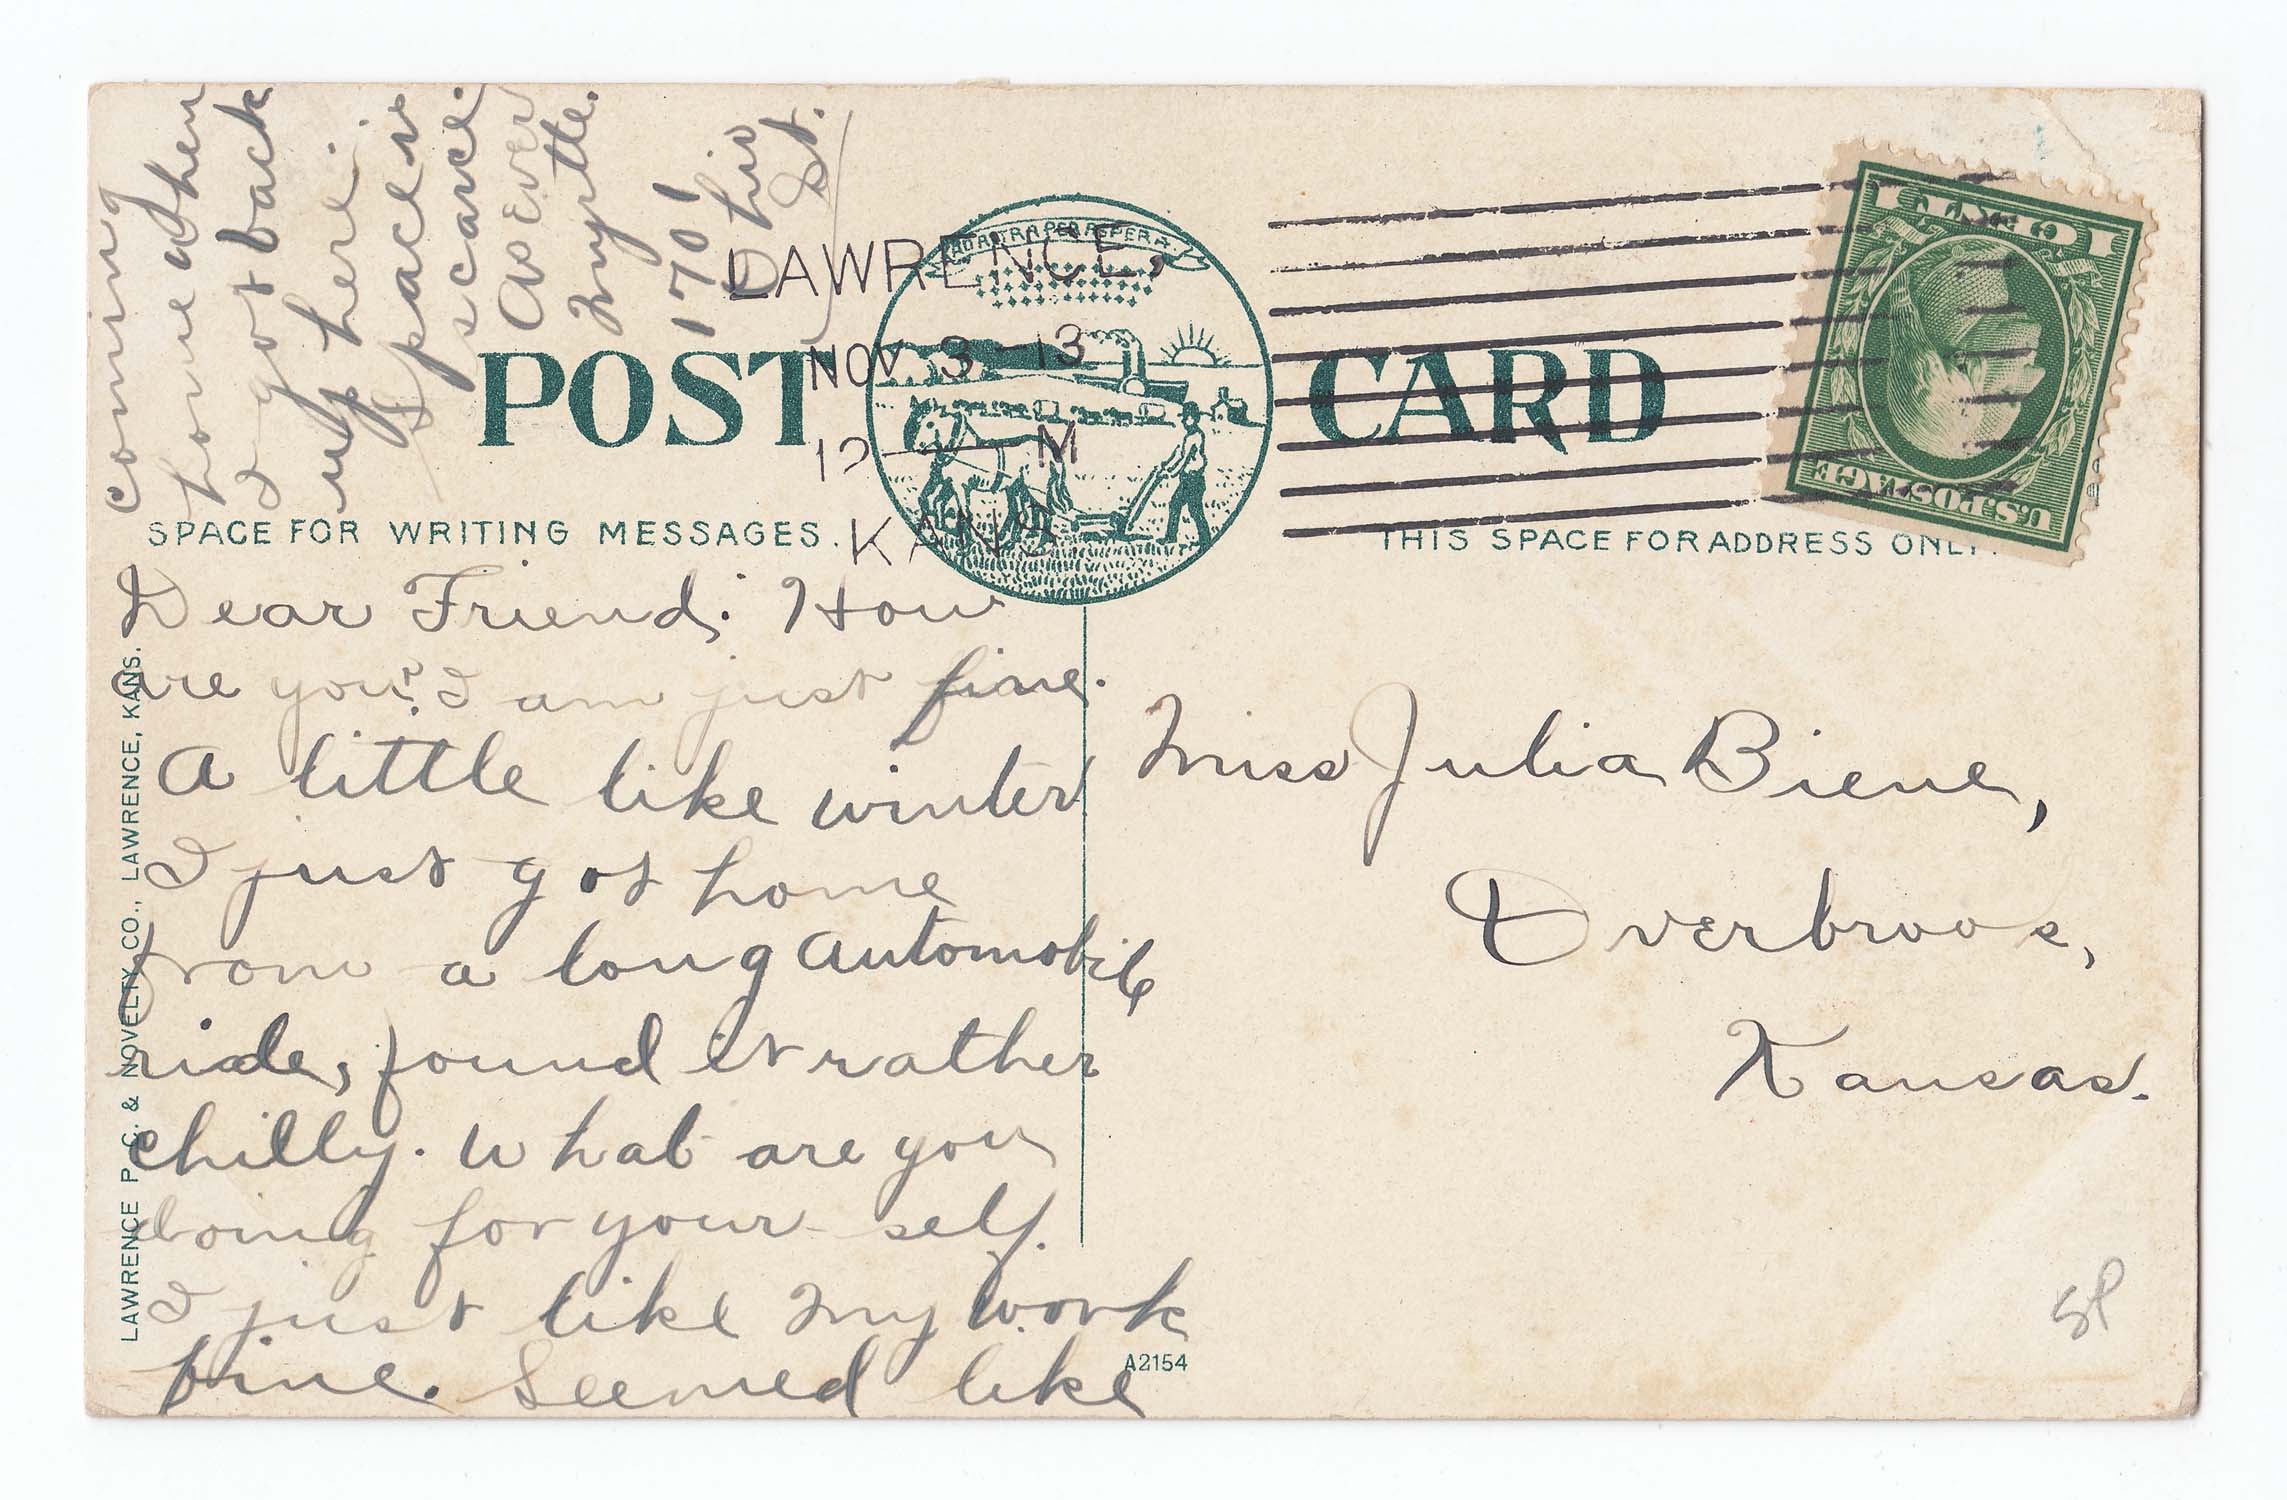 Dear Friend: How
are you? I am just fine.
A little like winter
I just got home
from a long automobile
ride, found it rather
chilly. What are you
doing for your self.
I just like my work
fine. Seemed like
coming
home when
I got back
up here.
Space is
scarce.
As ever
Myrtle.
1701
Ohio
St.
POST CARD
AD ASTRA PER ASPERA
LAWRENCE,
NOV 3 - 13
12 M
KANS.
1 CENT 1
U.S. POSTAGE
SPACE FOR WRITING MESSAGES.
THIS SPACE FOR ADDRESS ONLY.
Miss Julia Biene,
Overbrook,
Kansas.
LAWRENCE P. C. & NOVELTY CO., LAWRENCE, KANS.
A2154